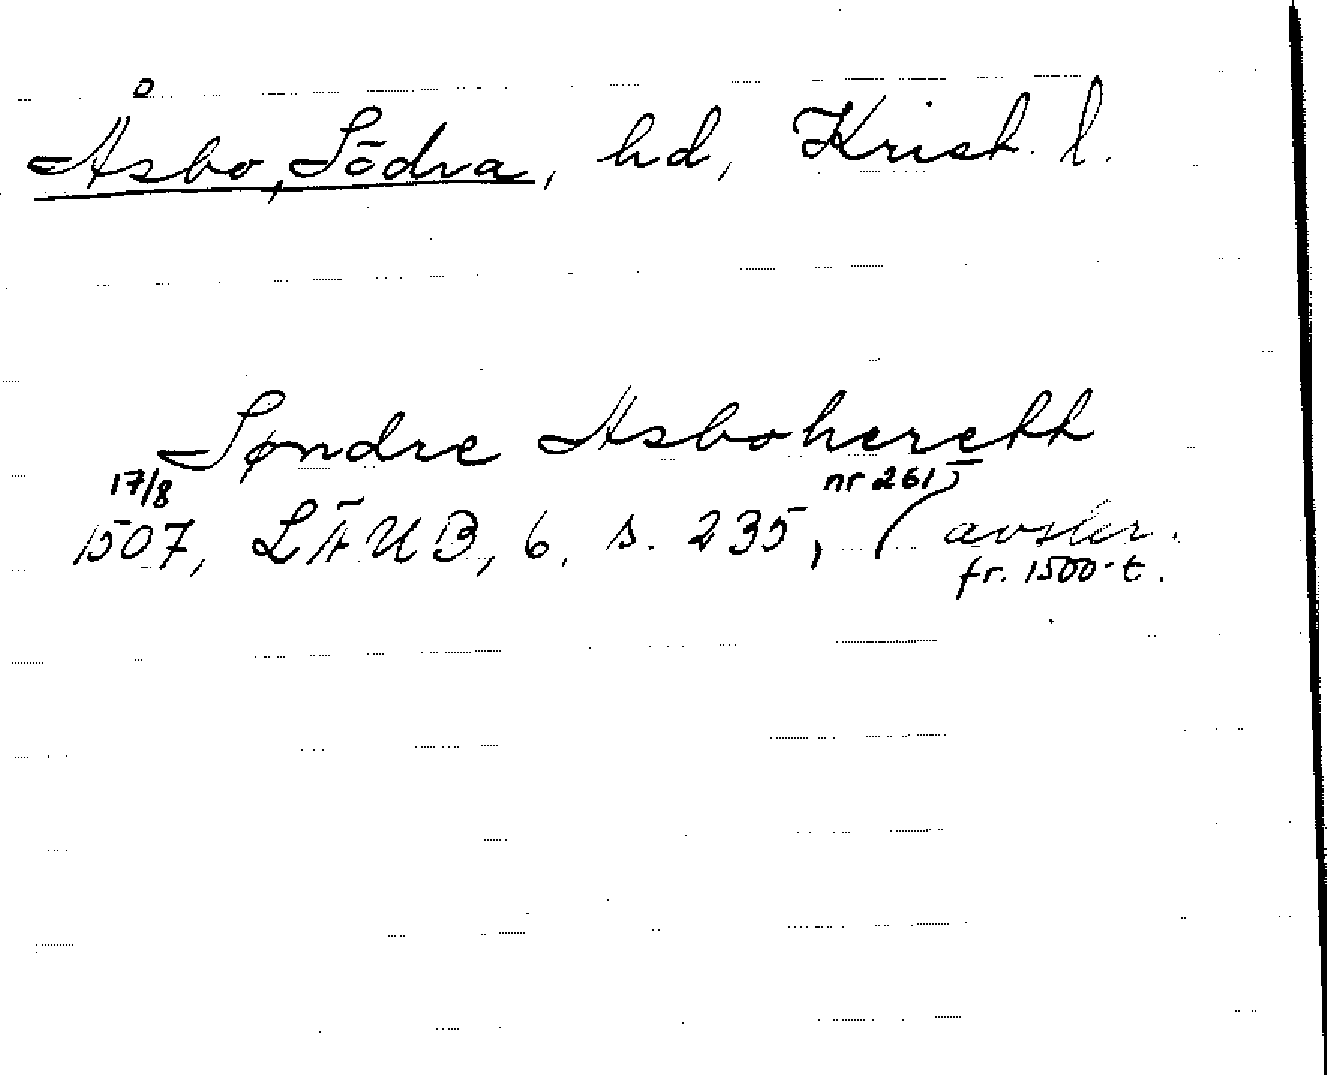 Åsbo, Södra, hd, Krist. l.
Søndre Asboherett
17/8 nr 261
1507, LÄUB, 6, s. 235, (avskr.
fr. 1500-t.